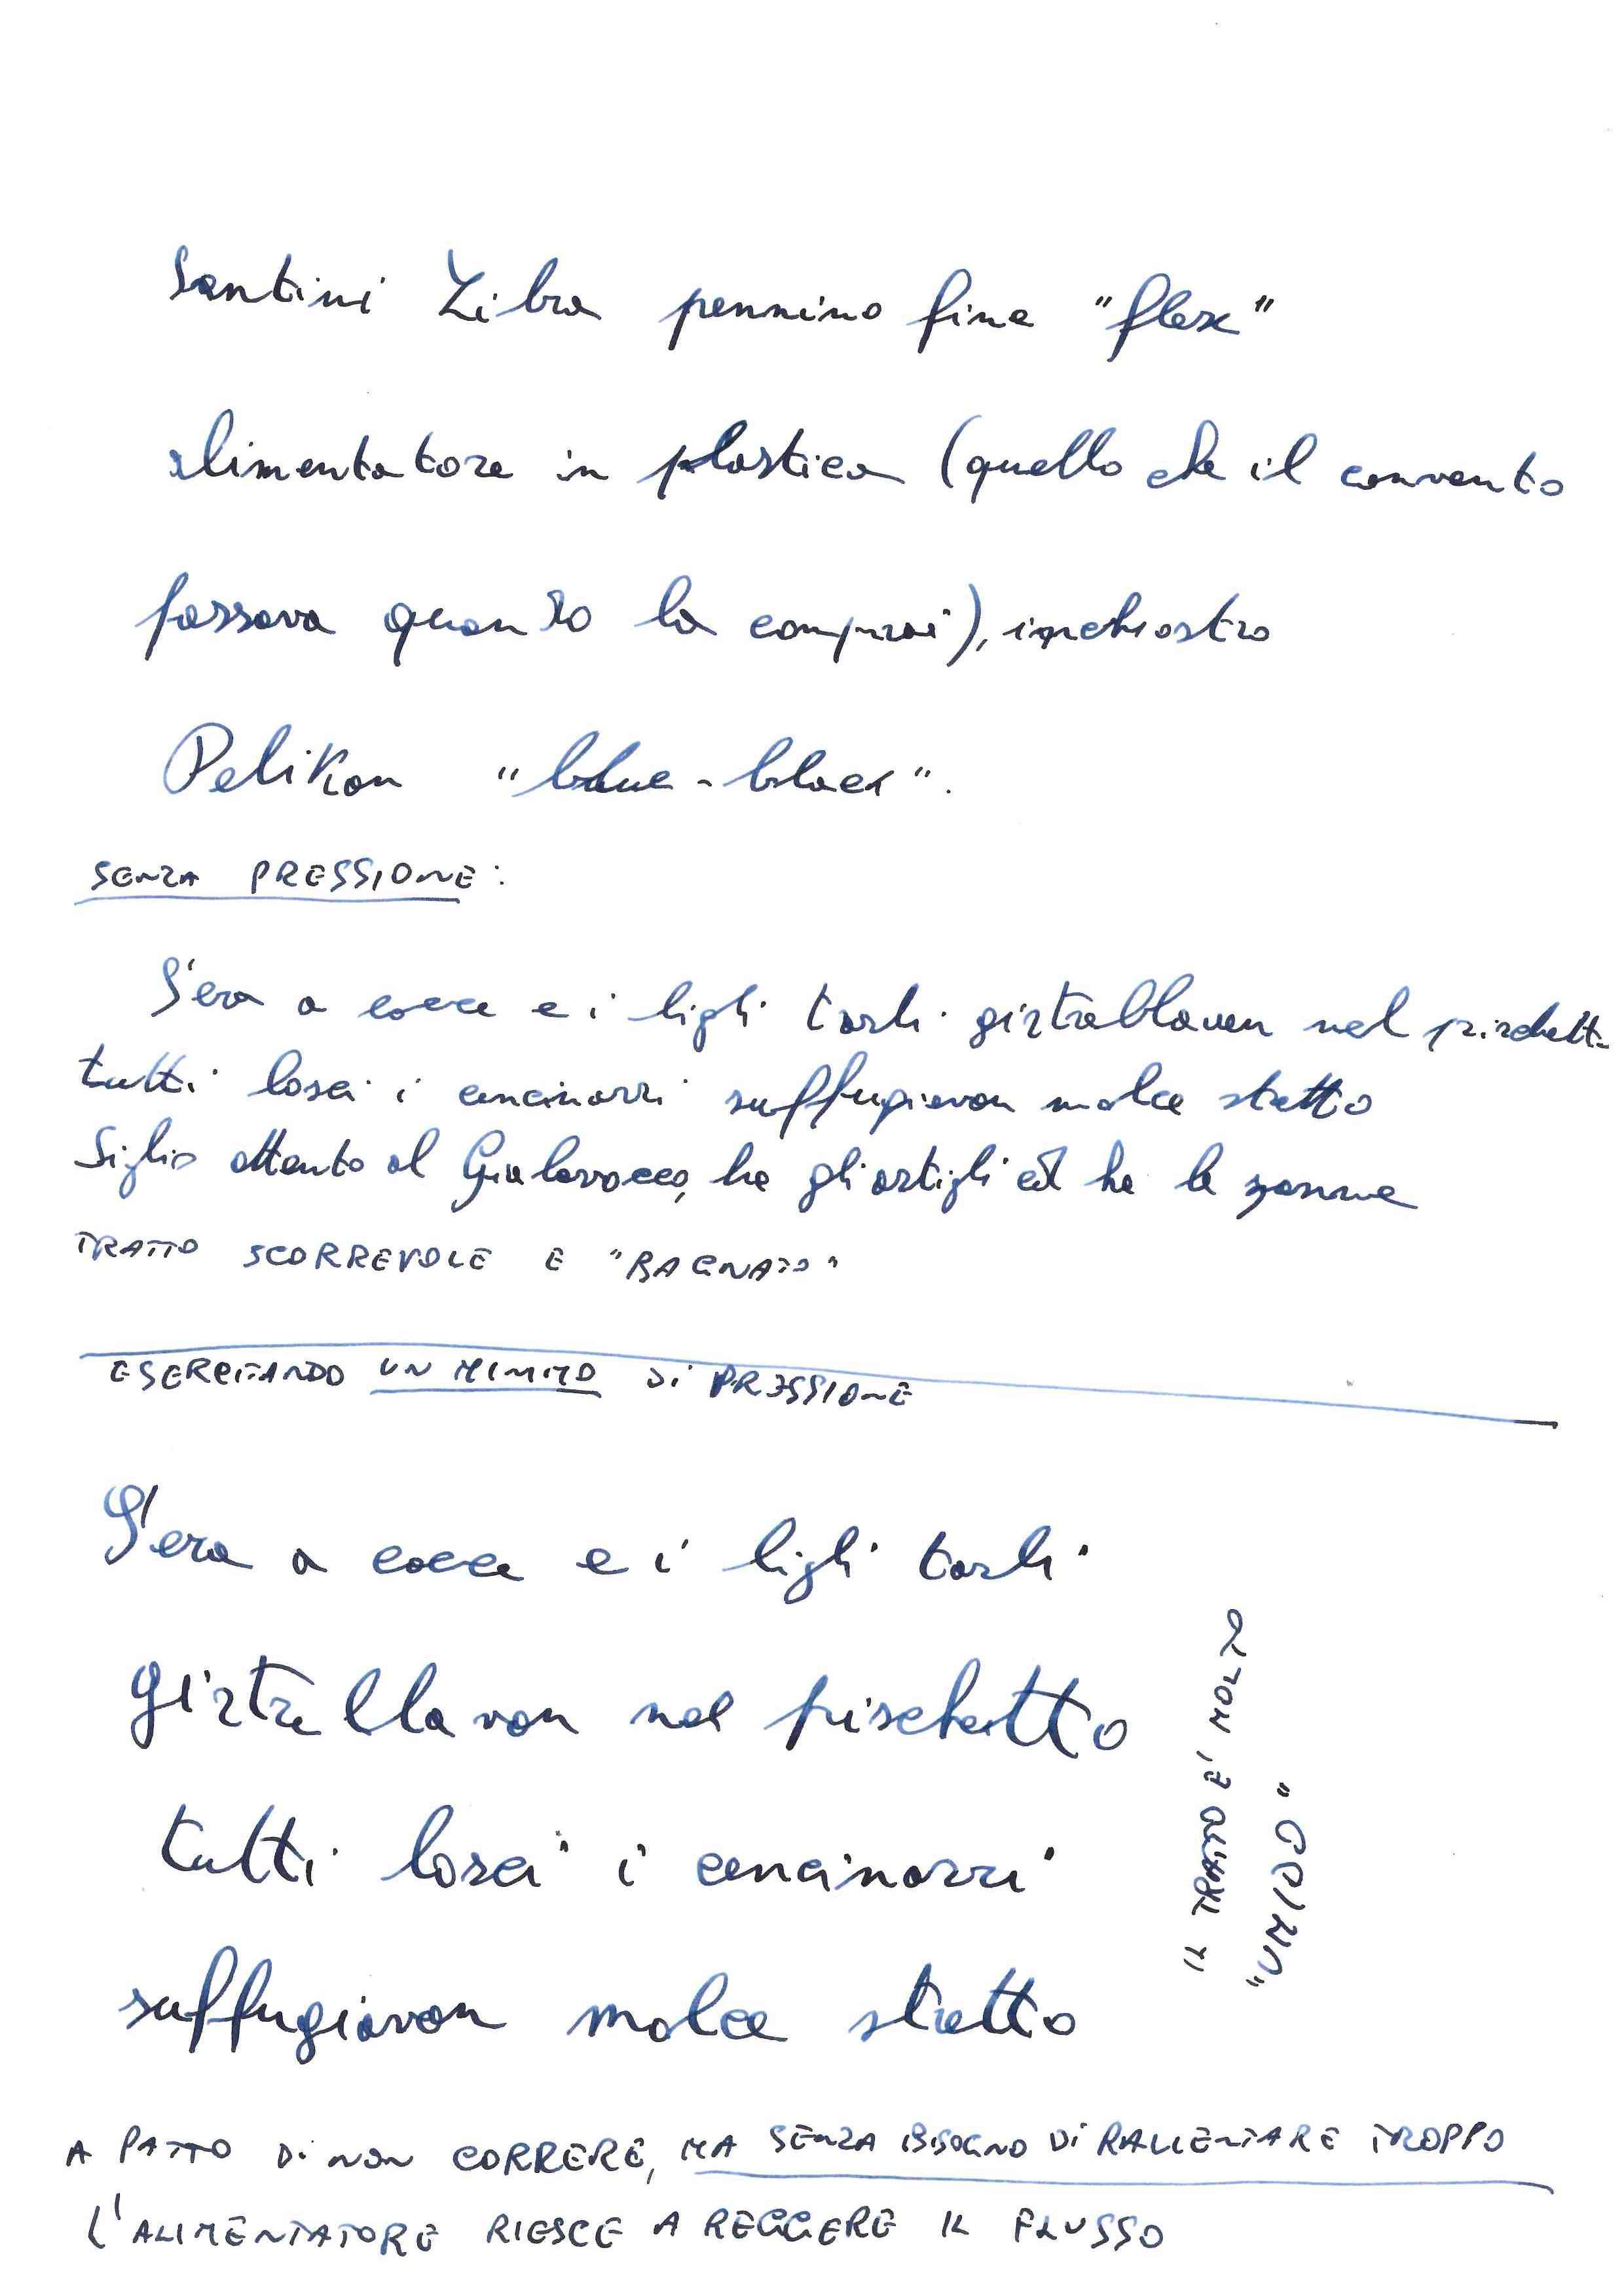 Santini Libra pennino fine "flex"
alimentatore in plastica (quello che il convento
passava quando la comprai), inchiostro
Pelikan "blue-black".
SENZA PRESSIONE:
S'era a cocce e i ligli tarli girtrellavan nel pischett
tutti losci i cencinarri suffugiavan molce stretto
Siglio attento al Gialavocco, ha gli artigli ed ha le zanne
TRATTO SCORREVOLE E "BAGNATO"
ESERCITANDO UN MINIMO DI PRESSIONE
S'era a cocce e i ligli tarli
girtrellavan nel pischetto
tutti losci i cencinarri
suffugiavan molce stretto
IL TRATTO E' MOLTO
"UMIDO"
A PATTO DI NON CORRERE, MA SENZA BISOGNO DI RALLENTARE TROPPO
L'ALIMENTATORE RIESCE A REGGERE IL FLUSSO